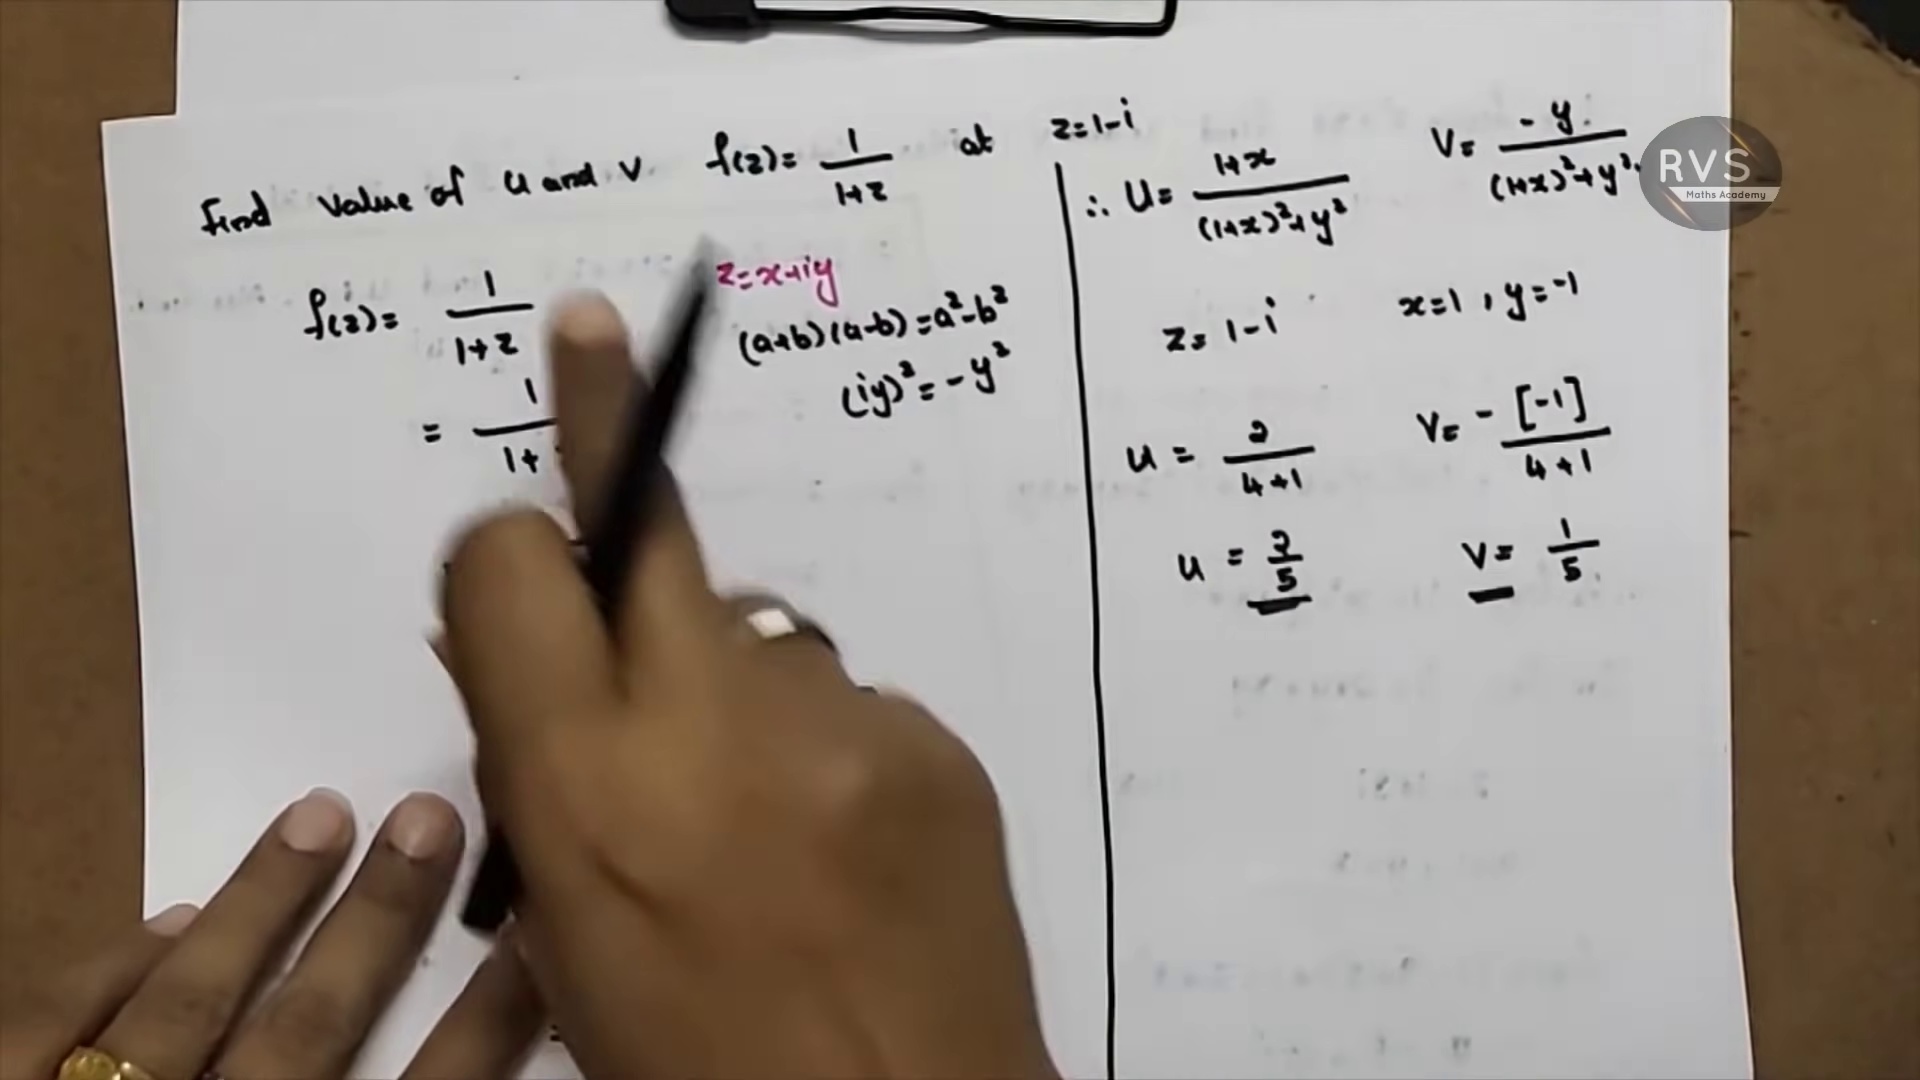 Find value of u and v f(z)= 1/(1+z) at z=1-i
f(z)= 1/(1+z)
= 1/(1+
z=x+iy
(a+b)(a-b)=a²-b²
(iy)²=-y²
∴ U= (1+x)/((1+x)²+y²) V= -y/((1+x)²+y²)
z= 1-i x=1, y=-1
u = 2/(4+1) V= -[-1]/(4+1)
u = 2/5 V= 1/5
RVS
Maths Academy